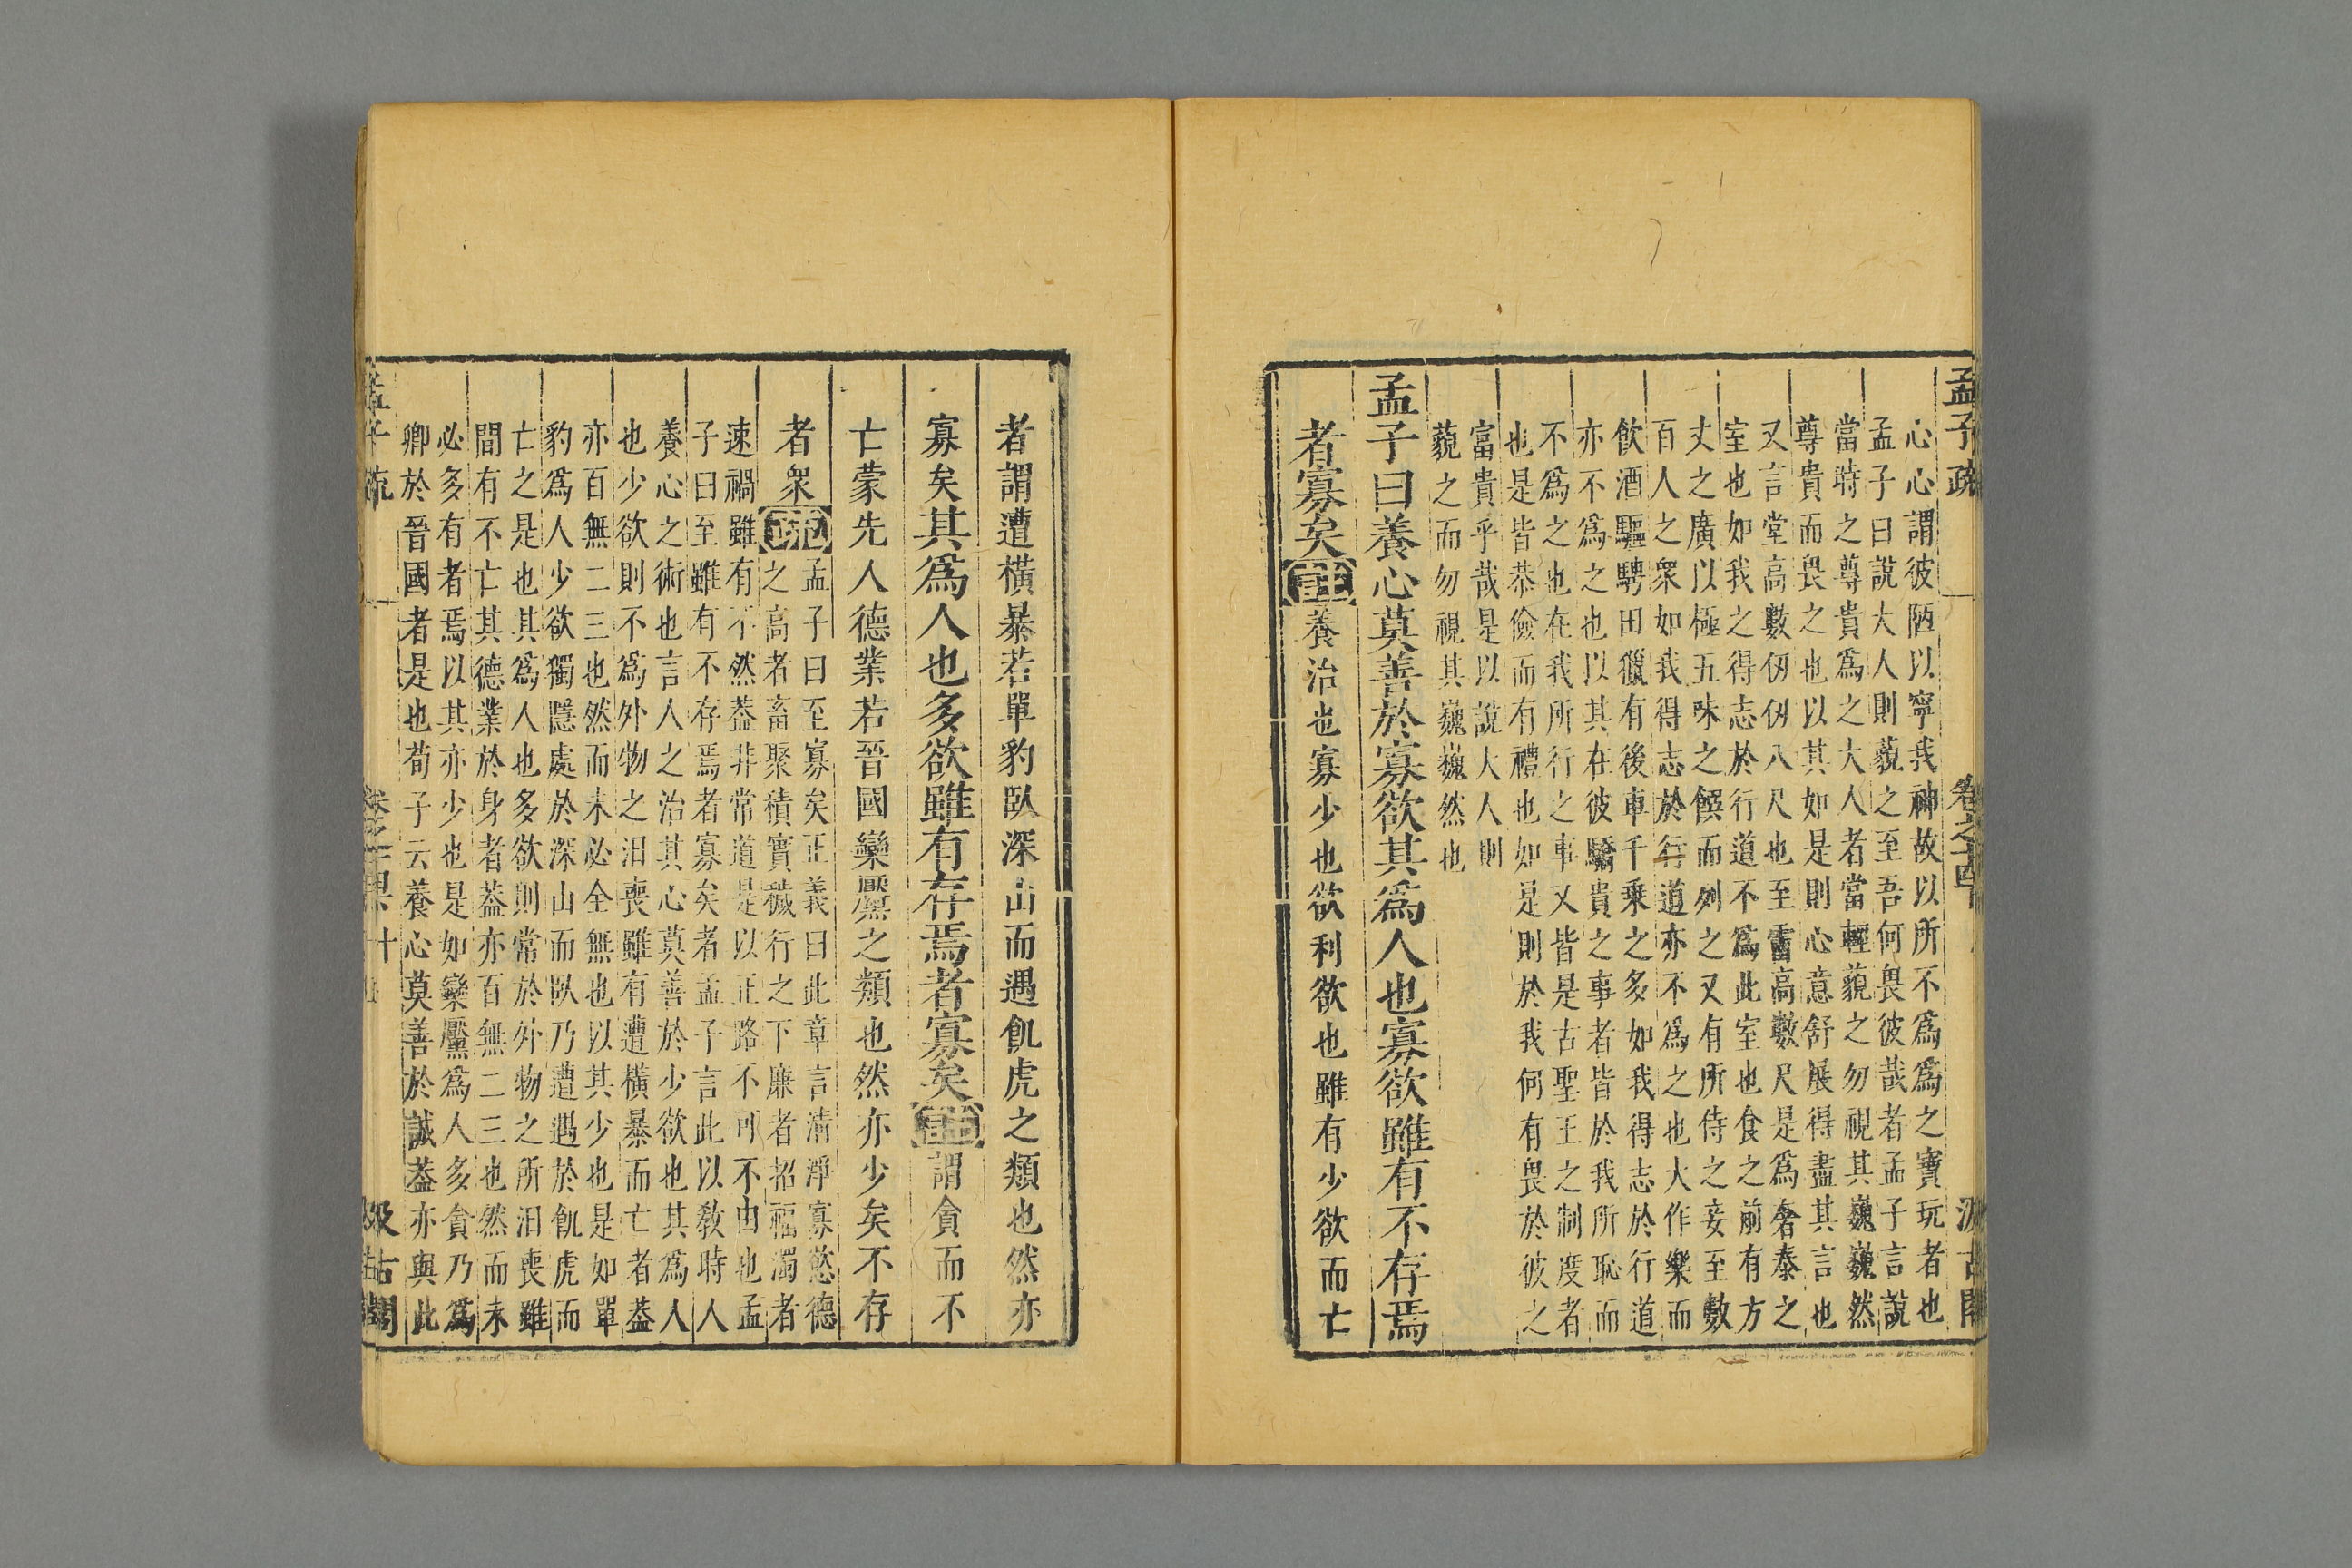 孟子疏
心心謂彼陋以寧我神故以所不爲爲之寶玩者也
孟子曰說大人則藐之至吾何畏彼哉者孟子言說
當時之尊貴爲之大人者當輕藐之勿視其巍巍然
尊貴而畏之也以其如是則心意舒展得盡其言也
又言堂高數仞仞八尺也至霤高數尺是爲奢泰之
室也如我之得志於行道不爲此室也食之前有方
丈之廣以極五味之饌而列之又有所侍之妾至數
百人之衆如我得志於行道亦不爲之也大作樂而
飲酒驅騁田獵有後車千乘之多如我得志於行道
亦不爲之也以其在彼驕貴之事者皆於我所恥而
不爲之也在我所行之事又皆是古聖王之制度者
也是皆恭儉而有禮也如是則於我何有畏於彼之
富貴乎哉是以說大人則
藐之而勿視其巍巍然也
孟子曰養心莫善於寡欲其爲人也寡欲雖有不存焉
者寡矣註養治也寡少也欲利欲也雖有少欲而亡
者謂遭橫暴若單豹臥深山而遇飢虎之類也然亦
寡矣其爲人也多欲雖有存焉者寡矣註謂貪而不
亡蒙先人德業若晉國欒黶之類也然亦少矣不存
者衆疏孟子曰至寡矣正義曰此章言清淨寡慾德
之高者畜聚積實穢行之下廉者招福濁者
速禍雖有不然蓋非常道是以正路不可不由也孟
子曰至雖有不存焉者寡矣者孟子言此以敎時人
養心之術也言人之治其心莫善於少欲也其爲人
也少欲則不爲外物之汨喪雖有遭橫暴而亡者蓋
亦百無二三也然而未必全無也以其少也是如單
豹爲人少欲獨隱處於深山而臥乃遭遇於飢虎而
亡之是也其爲人也多欲則常於外物之所汨喪雖
間有不亡其德業於身者蓋亦百無二三也然而未
必多有者焉以其亦少也是如欒黶爲人多貪乃爲
卿於晉國者是也荀子云養心莫善於誠蓋亦與此